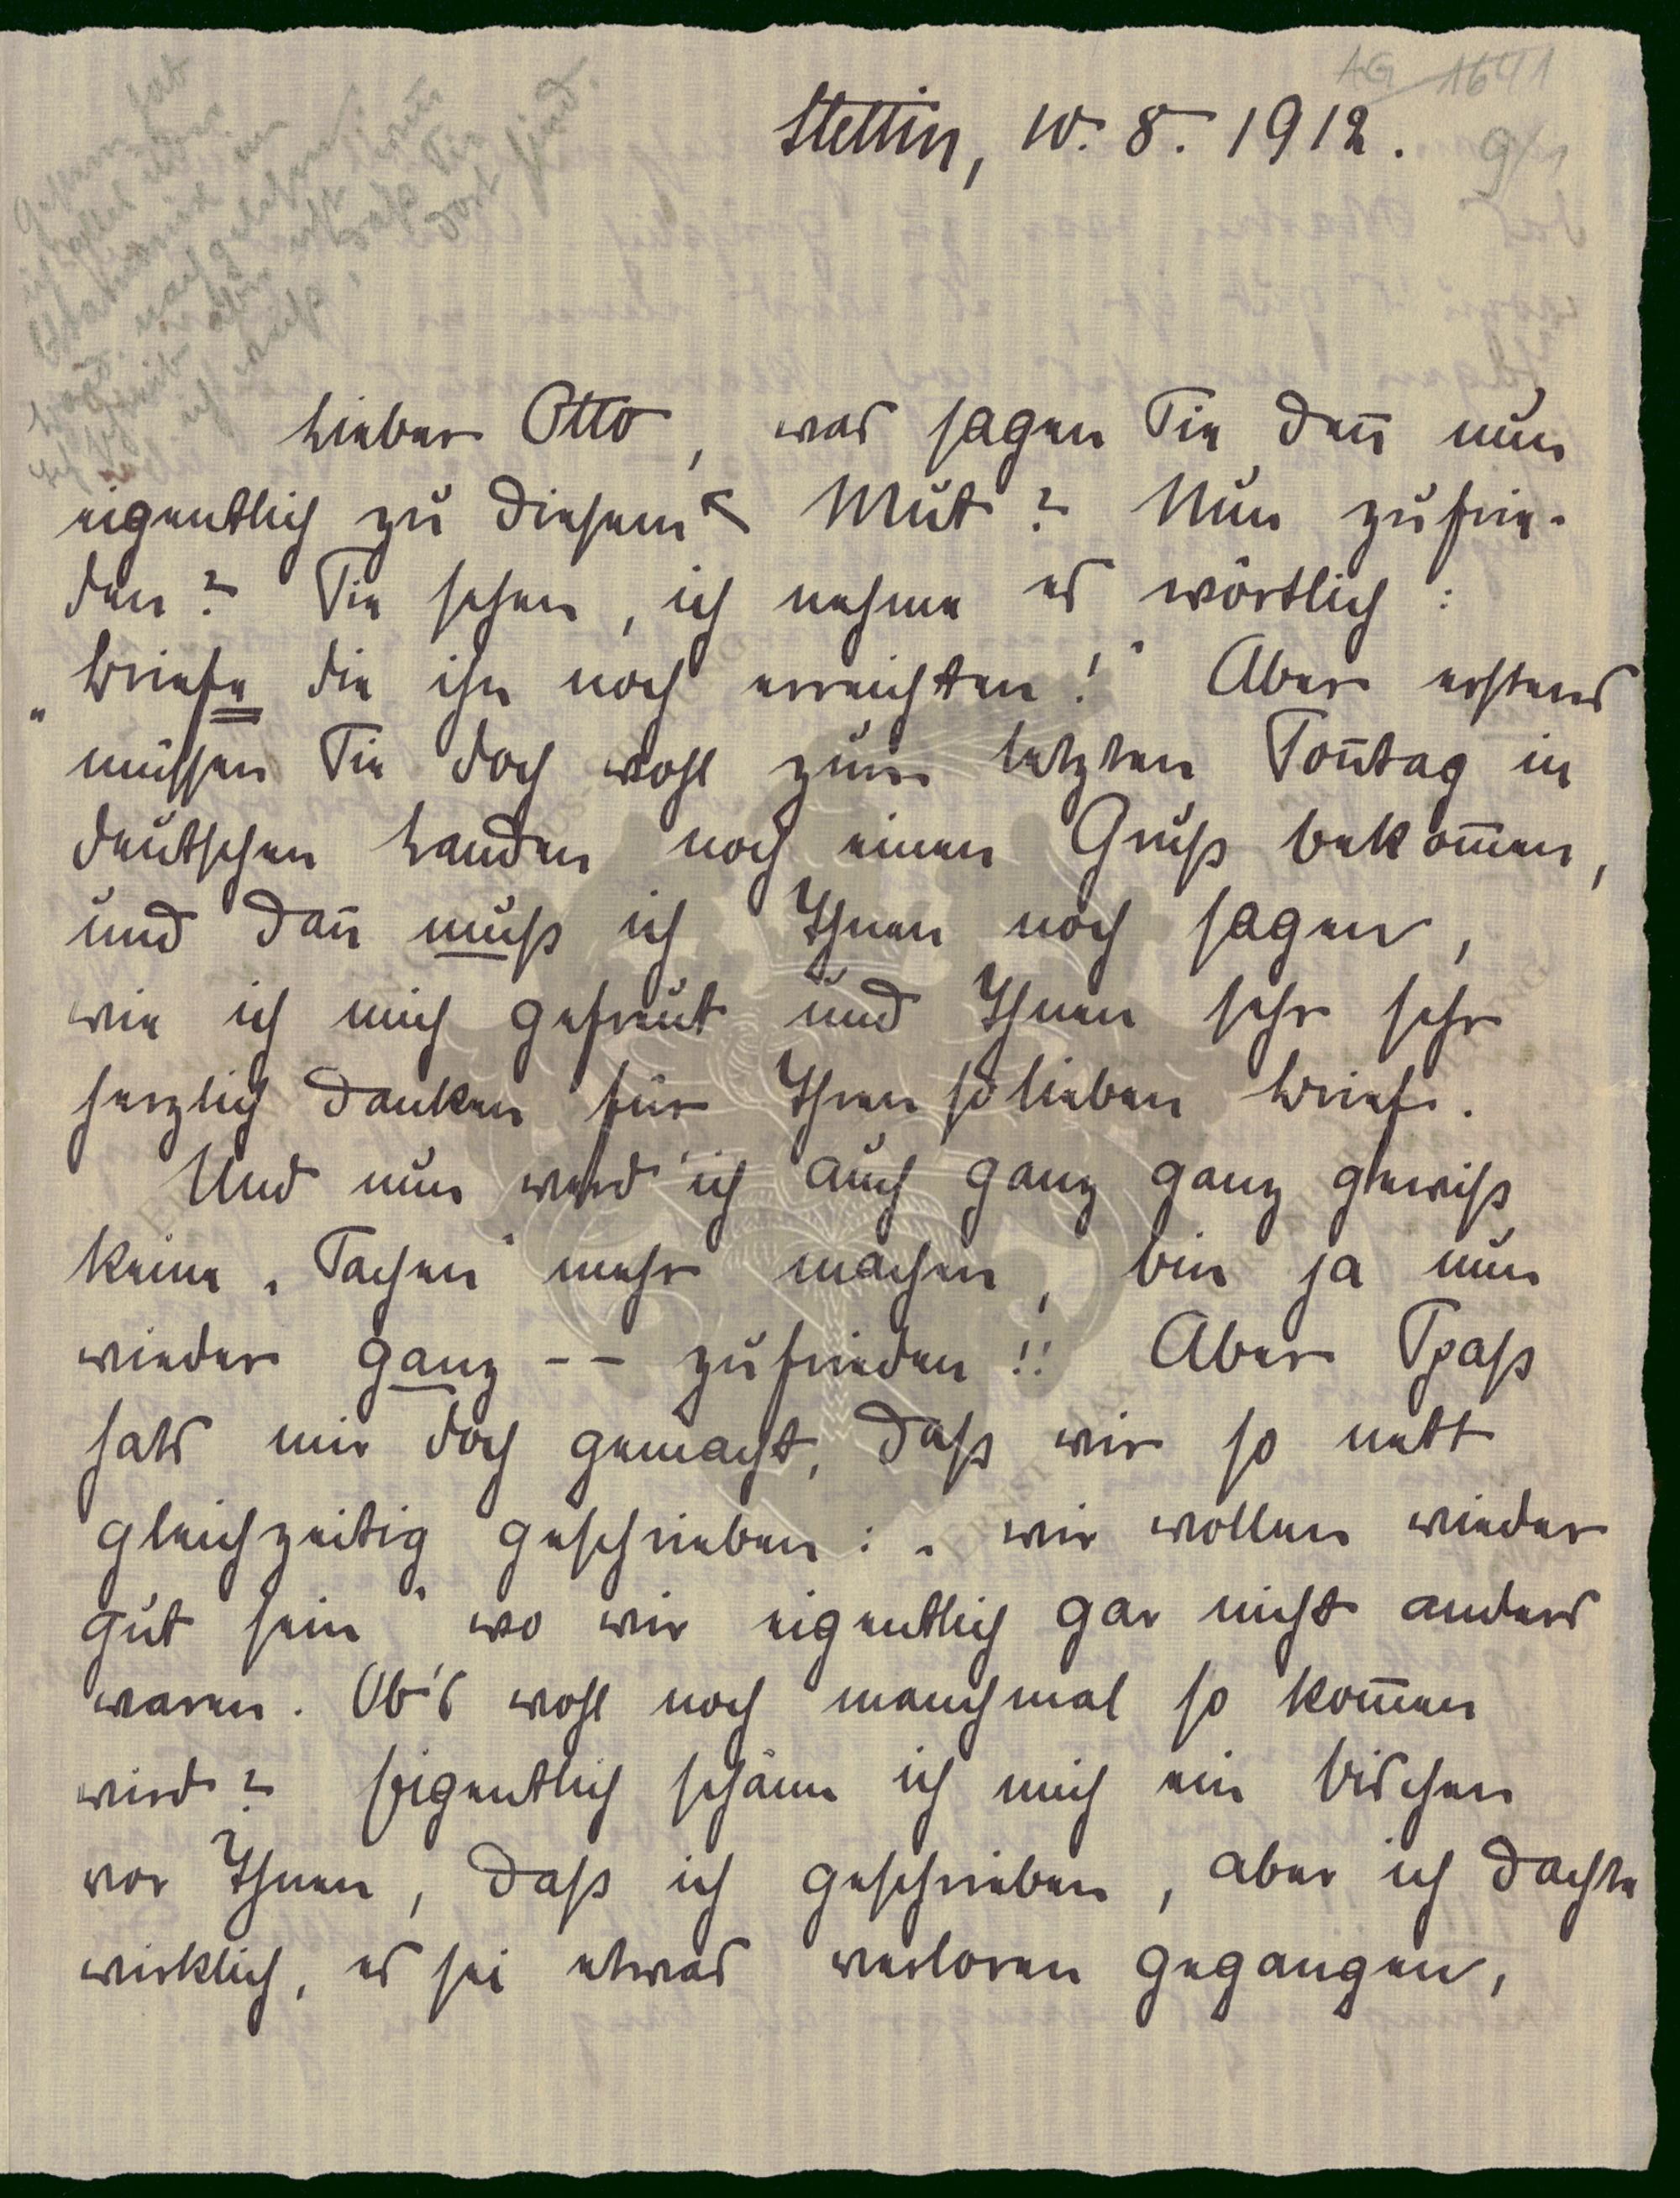 AG 1641
9/1
Stettin, 10. 8. 1912.
Lieber Otto, was sagen Sie den̄ nun
eigentlich zu diesem Mut? Nun zufrie-
den? Sie sehen, ich nehme es wörtlich:
„Briefe die ihn noch erreichten!" Aber erstens
müssen Sie doch wohl zum letzten Son̄tag in
deutschen Landen noch einen Gruß bekom̄en,
und dan̄ muß ich Ihnen noch sagen,
wie ich mich gefreut und Ihnen sehr sehr
herzlich danken für Ihren so lieben Brief.
Und nun werd' ich auch ganz ganz gewiss
keine „Sachen" mehr machen, bin ja nun
wieder ganz -- zufrieden!! Aber Spaß
hats mir doch gemacht, daß wir so nett
gleichzeitig geschrieben: „wir wollen wieder
gut sein" wo wir eigentlich gar nicht anders
waren. Ob's wohl noch manchmal so kom̄en
wird? Eigentlich schäm ich mich ein bischen
vor Ihnen, daß ich geschrieben, aber ich dachte
wirklich, es sei etwas verloren gegangen,